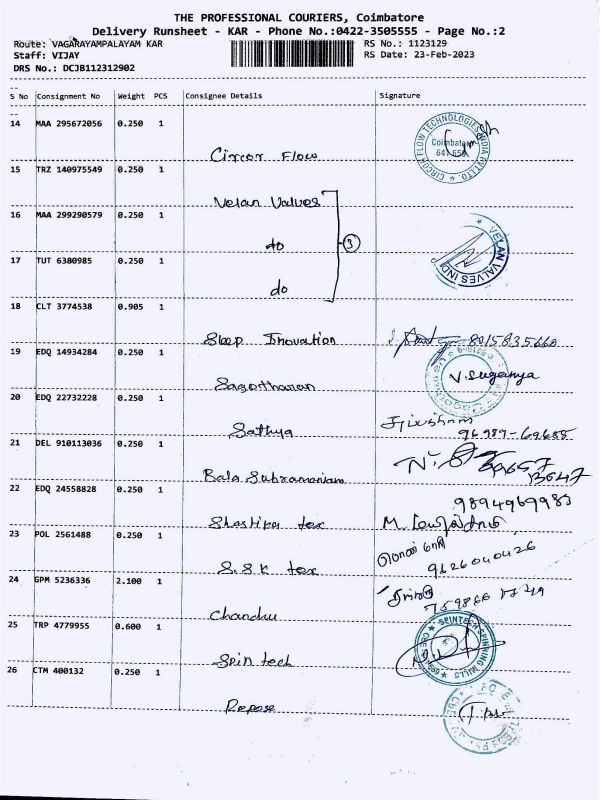 THE PROFESSIONAL COURIERS, Coimbatore
Delivery Runsheet - KAR - Phone No.:0422-3505555 - Page No.:2
Route: VAGARAYAMPALAYAM KAR
RS No.: 1123129
Staff: VIJAY
RS Date: 23-Feb-2023
DRS No.: DCJB112312902
S No Consignment No Weight PCS Consignee Details Signature
14 MAA 295672056 0.250 1
Circor Flow
CIRCOR FLOW TECHNOLOGIES INDIA PVT LTD.
Coimbatore
641 659
15 TRZ 140975549 0.250 1
Velan Valves
16 MAA 299290579 0.250 1
do
3
VELAN VALVES INDIA
17 TUT 6380985 0.250 1
do
18 CLT 3774538 0.905 1
Sleep Inovation
8015835660
19 EDQ 14934284 0.250 1
V. Suganya
20 EDQ 22732228 0.250 1
Sathya
96989-69688
21 DEL 910113036 0.250 1
Bala Subramaniam
22 EDQ 24558828 0.250 1
9894969983
Shastika tex
M.
23 POL 2561488 0.250 1
S.S.K tex
9626040426
24 GPM 5236336 2.100 1
Chandru
25 TRP 4779955 0.600 1
Spin tech
SPINTECH SPINNING MILLS
26 CTM 400132 0.250 1
Repose